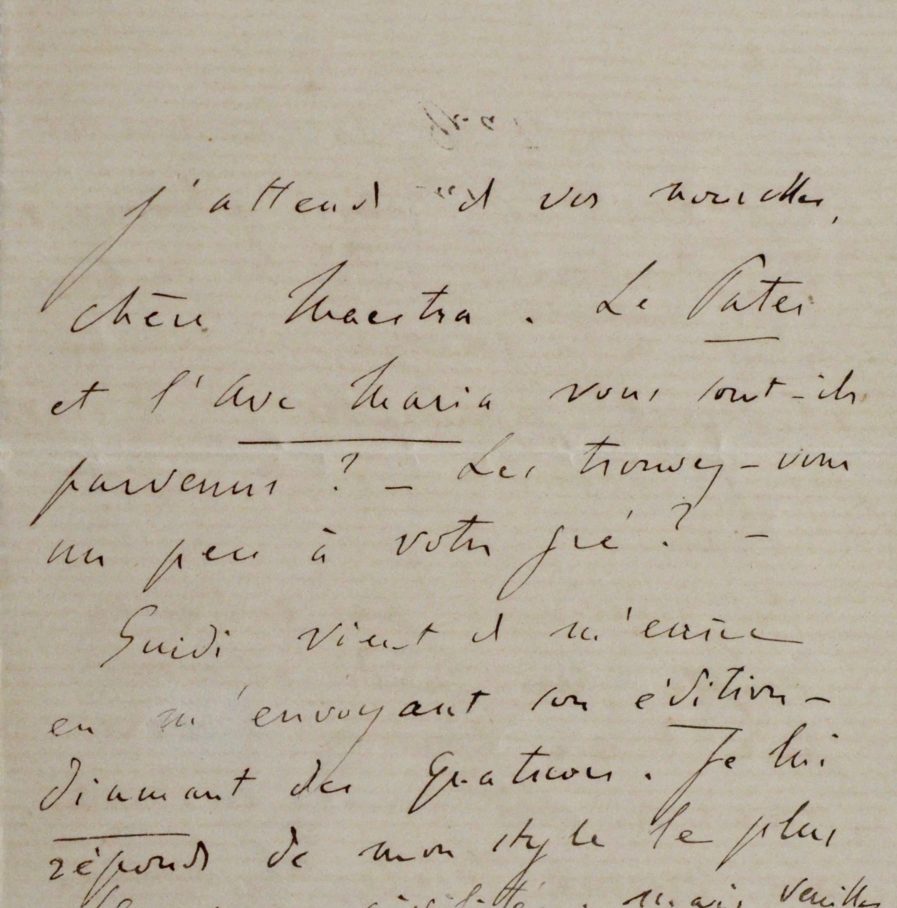 J'attends de vos nouvelles,
chère Maestra. Le Pater
et l'Ave Maria vous sont-ils
parvenus ? — Les trouvez-vous
un peu à votre gré ? —
Guidi vient de m'écrire
en m'envoyant son édition-
diamant des Quatuors. Je lui
réponds de mon style le plus
mais veuillez